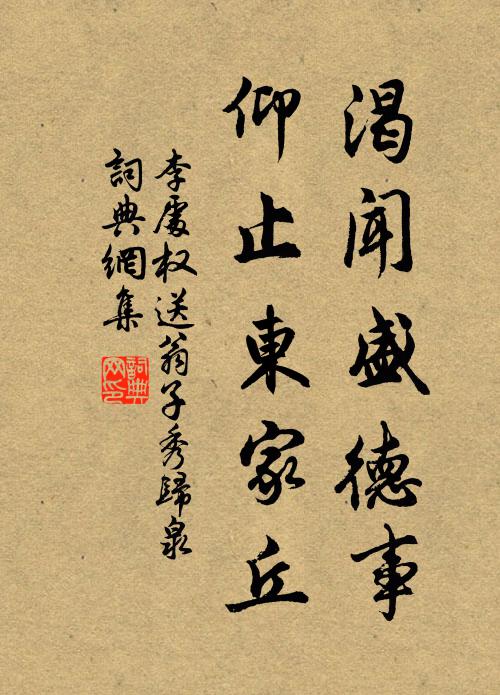 渴聞盛德事
仰止東家丘
李處权送翁子秀歸泉
詞典網集
詞典網印